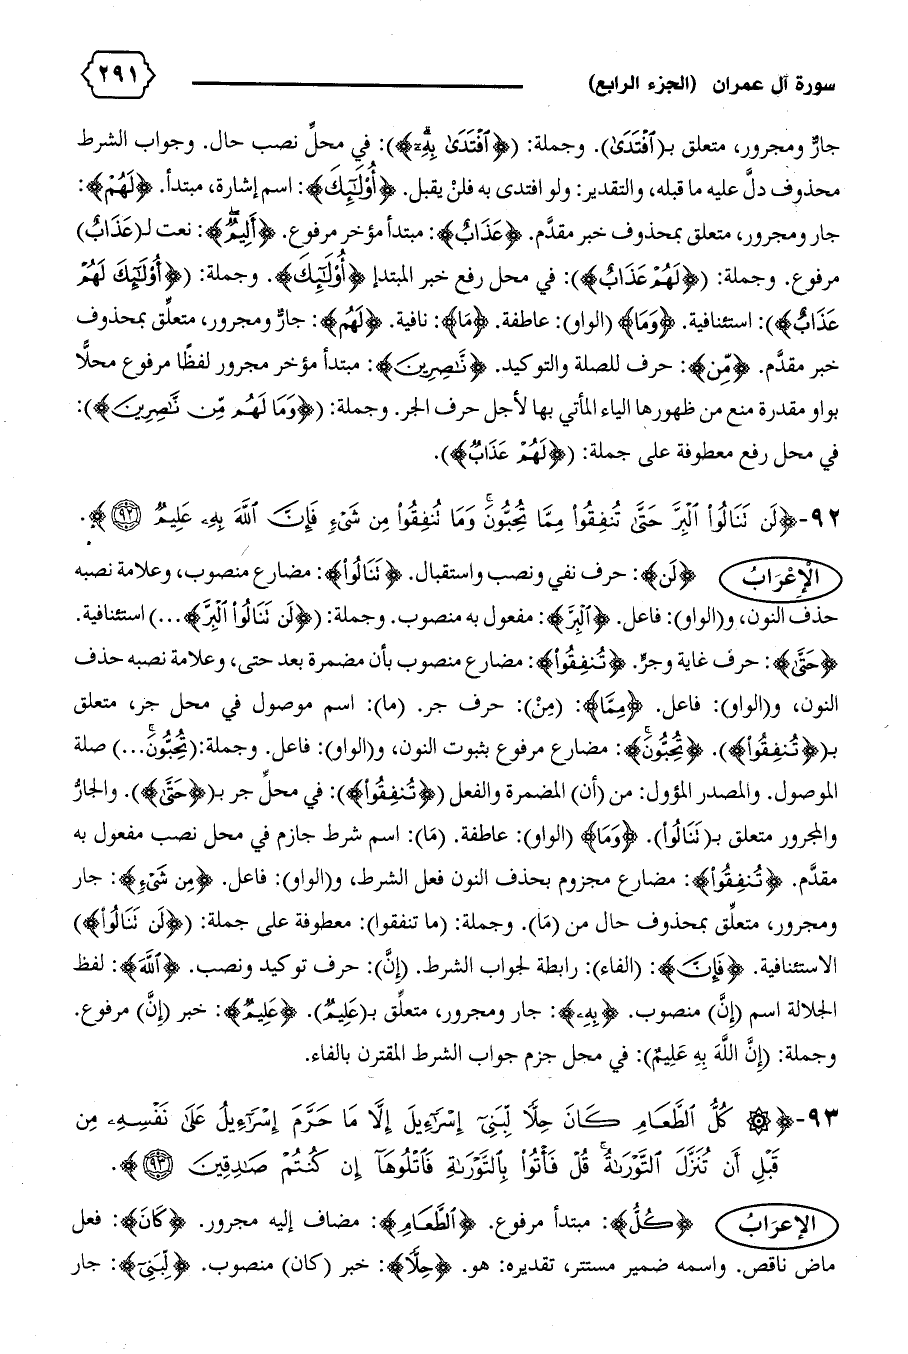 سورة آل عمران (الجزء الرابع)
٢٩١
جارٌّ ومجرور، متعلق بـ(ٱفْتَدَىٰ). وجملة: (﴿ٱفْتَدَىٰ بِهِۦٓ﴾): في محلِّ نصب حال. وجواب الشرط
محذوف دلَّ عليه ما قبله، والتقدير: ولو افتدى به فلنْ يقبل. ﴿أُوْلَٰٓئِكَ﴾: اسم إشارة، مبتدأ. ﴿لَهُمْ﴾:
جار ومجرور، متعلق بمحذوف خبر مقدَّم. ﴿عَذَابٌ﴾: مبتدأ مؤخر مرفوع. ﴿أَلِيمٌ﴾: نعت لـ(عَذَابٌ)
مرفوع. وجملة: (﴿لَهُمْ عَذَابٌ﴾): في محل رفع خبر المبتدإ ﴿أُوْلَٰٓئِكَ﴾. وجملة: (﴿أُوْلَٰٓئِكَ لَهُمْ
عَذَابٌ﴾): استئنافية. ﴿وَمَا﴾ (الواو): عاطفة. ﴿مَا﴾: نافية. ﴿لَهُم﴾: جارٌّ ومجرور، متعلِّق بمحذوف
خبر مقدَّم. ﴿مِّن﴾: حرف للصلة والتوكيد. ﴿نَّٰصِرِينَ﴾: مبتدأ مؤخر مجرور لفظًا مرفوع محلًّا
بواو مقدرة منع من ظهورها الياء المأتي بها لأجل حرف الجر. وجملة: (﴿وَمَا لَهُم مِّن نَّٰصِرِينَ﴾):
في محل رفع معطوفة على جملة: (﴿لَهُمْ عَذَابٌ﴾).
٩٢-﴿لَن تَنَالُوا۟ ٱلْبِرَّ حَتَّىٰ تُنفِقُوا۟ مِمَّا تُحِبُّونَ ۚ وَمَا تُنفِقُوا۟ مِن شَىْءٍ فَإِنَّ ٱللَّهَ بِهِۦ عَلِيمٌ ٩٢﴾.
الْإِعْرَابُ ﴿لَن﴾: حرف نفي ونصب واستقبال. ﴿تَنَالُوا۟﴾: مضارع منصوب، وعلامة نصبه
حذف النون، و(الواو): فاعل. ﴿ٱلْبِرَّ﴾: مفعول به منصوب. وجملة: (﴿لَن تَنَالُوا۟ ٱلْبِرَّ﴾...) استئنافية.
﴿حَتَّىٰ﴾: حرف غاية وجرٍّ. ﴿تُنفِقُوا۟﴾: مضارع منصوب بأن مضمرة بعد حتى، وعلامة نصبه حذف
النون، و(الواو): فاعل. ﴿مِمَّا﴾: (مِنْ): حرف جر. (ما): اسم موصول في محل جر، متعلق
بـ(﴿تُنفِقُوا۟﴾). ﴿تُحِبُّونَ ۚ﴾: مضارع مرفوع بثبوت النون، و(الواو): فاعل. وجملة:(تُحِبُّونَ ۚ...) صلة
الموصول. والمصدر المؤول: من (أن) المضمرة والفعل (﴿تُنفِقُوا۟﴾): في محلِّ جر بـ(﴿حَتَّىٰ﴾). والجارُّ
والمجرور متعلق بـ(تَنَالُوا۟). ﴿وَمَا﴾ (الواو): عاطفة. (مَا): اسم شرط جازم في محل نصب مفعول به
مقدَّم. ﴿تُنفِقُوا۟﴾: مضارع مجزوم بحذف النون فعل الشرط، و(الواو): فاعل. ﴿مِن شَىْءٍ﴾: جار
ومجرور، متعلِّق بمحذوف حال من (مَا). وجملة: (ما تنفقوا): معطوفة على جملة: (﴿لَن تَنَالُوا۟﴾)
الاستئنافية. ﴿فَإِنَّ﴾: (الفاء): رابطة لجواب الشرط. (إِنَّ): حرف توكيد ونصب. ﴿ٱللَّهَ﴾: لفظ
الجلالة اسم (إِنَّ) منصوب. ﴿بِهِۦ﴾: جار ومجرور، متعلِّق بـ(عَلِيمٌ). ﴿عَلِيمٌ﴾: خبر (إِنَّ) مرفوع.
وجملة: (إِنَّ اللَّهَ بِهِ عَلِيمٌ): في محل جزم جواب الشرط المقترن بالفاء.
٩٣-﴿۞ كُلُّ ٱلطَّعَامِ كَانَ حِلًّا لِّبَنِىٓ إِسْرَٰٓءِيلَ إِلَّا مَا حَرَّمَ إِسْرَٰٓءِيلُ عَلَىٰ نَفْسِهِۦ مِن
قَبْلِ أَن تُنَزَّلَ ٱلتَّوْرَىٰةُ ۗ قُلْ فَأْتُوا۟ بِٱلتَّوْرَىٰةِ فَٱتْلُوهَآ إِن كُنتُمْ صَٰدِقِينَ ٩٣﴾.
الإعرَابُ ﴿كُلُّ﴾: مبتدأ مرفوع. ﴿ٱلطَّعَامِ﴾: مضاف إليه مجرور. ﴿كَانَ﴾: فعل
ماض ناقص. واسمه ضمير مستتر، تقديره: هو. ﴿حِلًّا﴾: خبر (كان) منصوب. ﴿لِّبَنِىٓ﴾: جار